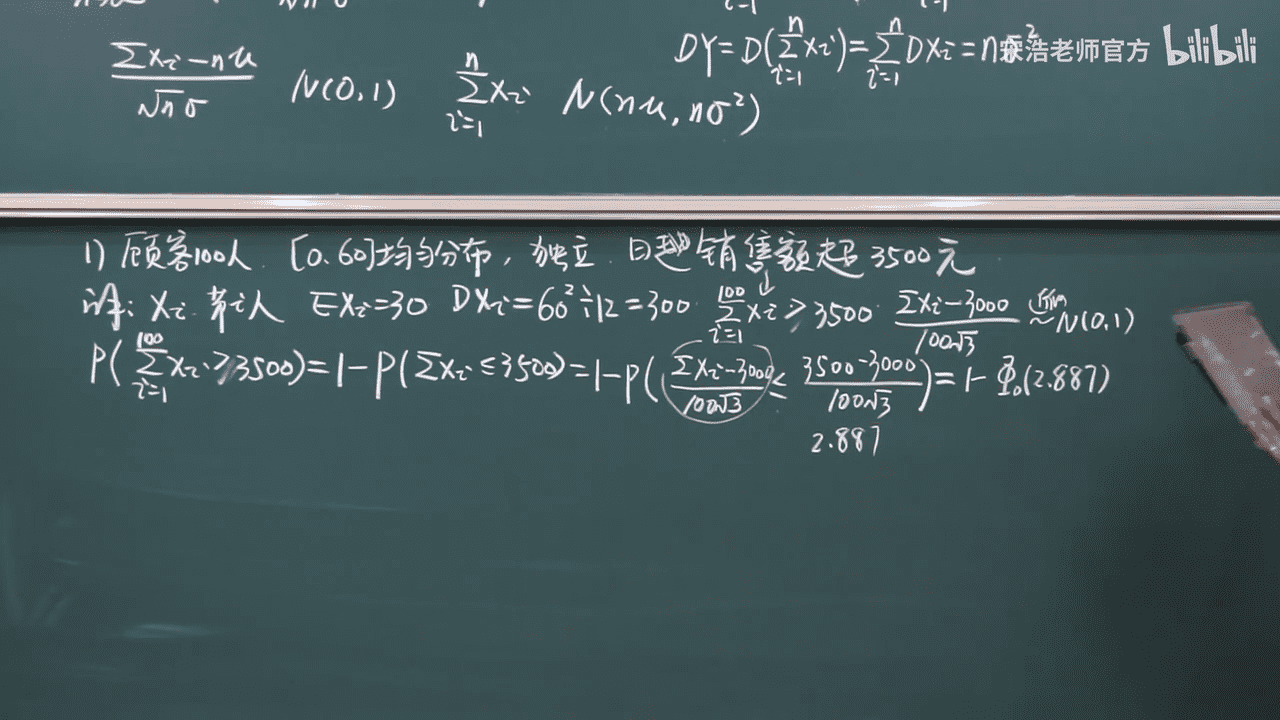 i=1 i=1
DY=D(∑_{i=1}^{n}Xi)=∑_{i=1}^{n}DXi=nσ²
宋浩老师官方 bilibili
(∑Xi-nμ)/(√nσ) N(0,1) ∑_{i=1}^{n}Xi N(nμ,nσ²)
1) 顾客100人. [0.60]均匀分布, 独立. 日 销售额超3500元
解: Xi 第i人 EXi=30 DXi=60²÷12=300 ∑_{i=1}^{100}Xi≥3500. (∑Xi-3000)/(100√3) 近似~ N(0,1)
P(∑_{i=1}^{100}Xi>3500)=1-P(∑Xi≤3500)=1-P((∑Xi-3000)/(100√3)≤(3500-3000)/(100√3))=1-Φ₀(2.887)
2.887